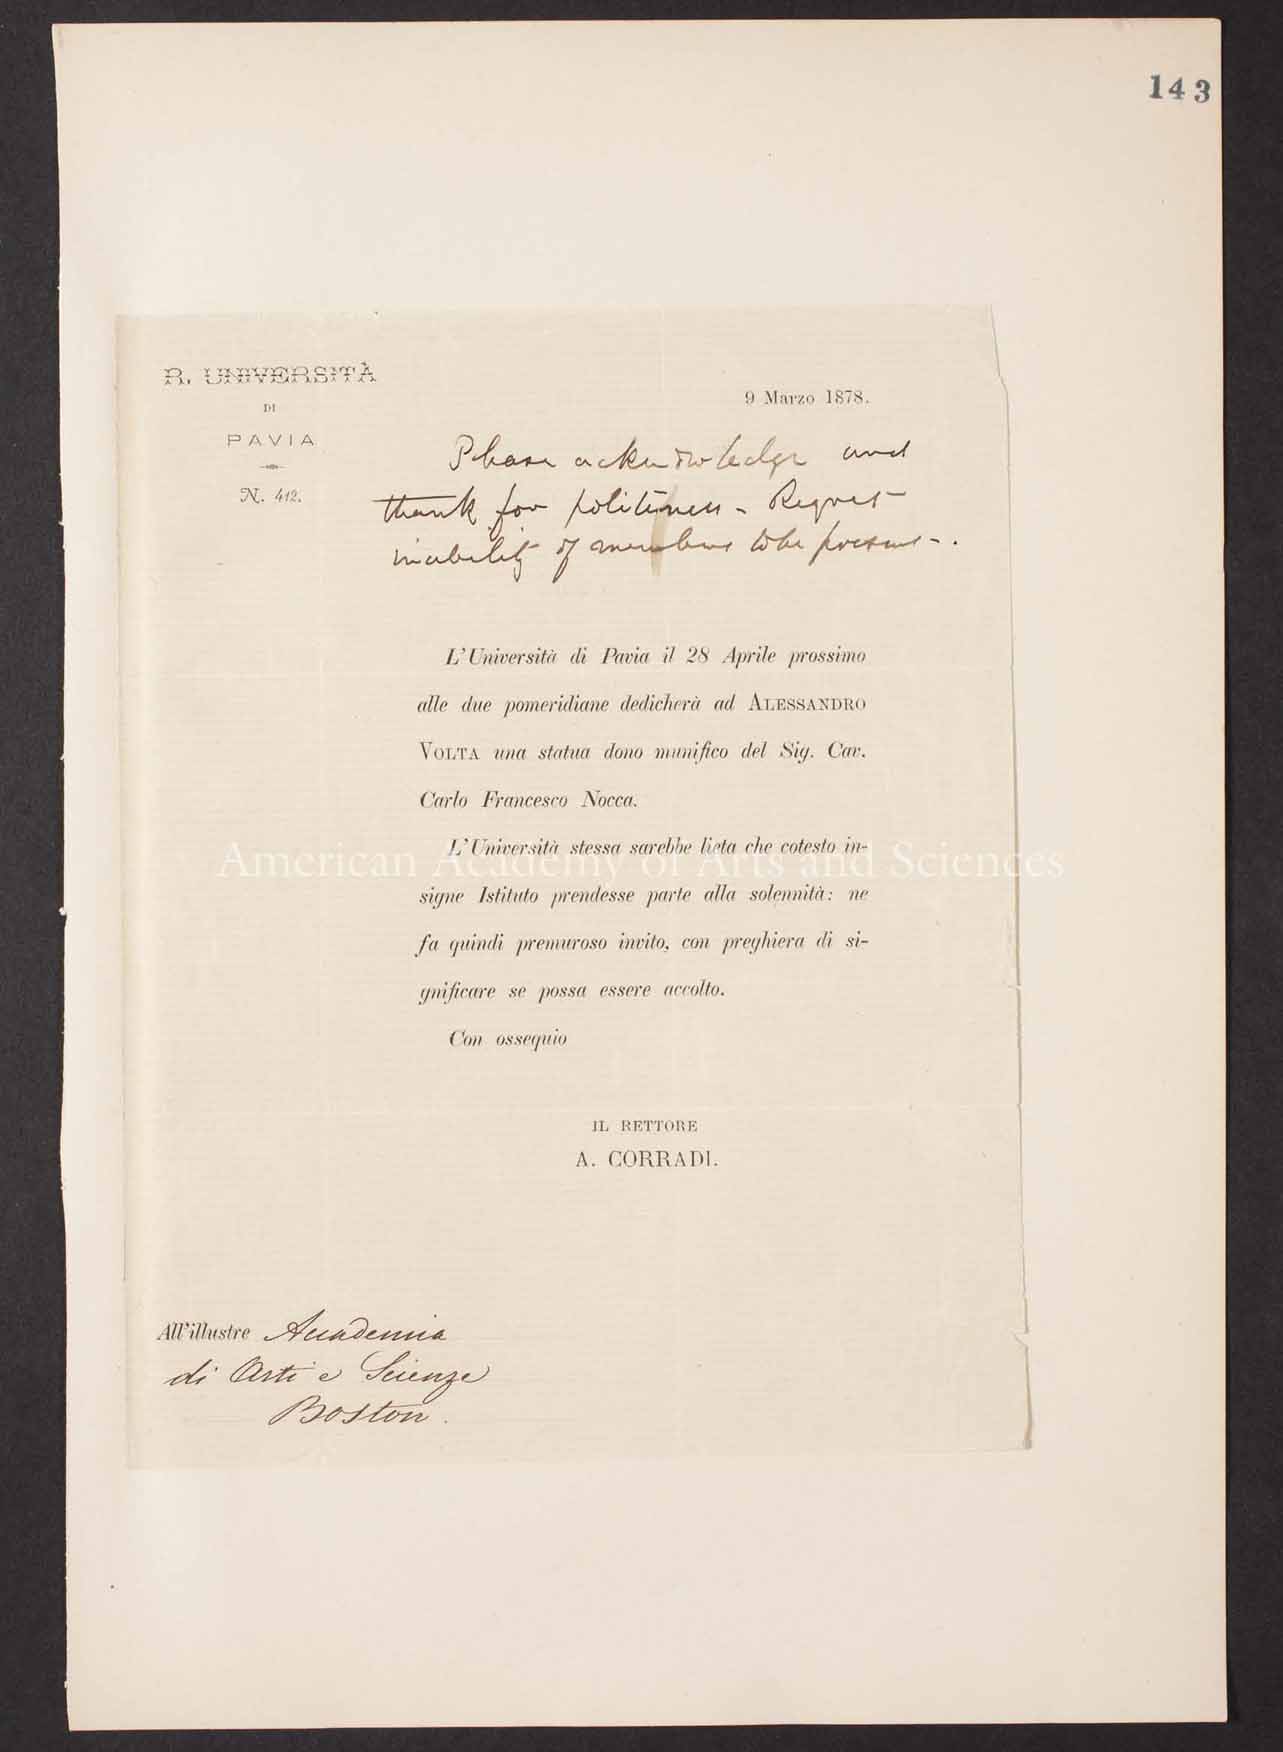 143
R. UNIVERSITÀ
DI
PAVIA
N. 412.
9 Marzo 1878.
Please acknowledge and
thank for politeness - Regret
inability of members to be present -.
L'Università di Pavia il 28 Aprile prossimo
alle due pomeridiane dedicherà ad ALESSANDRO
VOLTA una statua dono munifico del Sig. Cav.
Carlo Francesco Nocca.
L'Università stessa sarebbe lieta che cotesto in-
American Academy of Arts and Sciences
signe Istituto prendesse parte alla solennità: ne
fa quindi premuroso invito, con preghiera di si-
gnificare se possa essere accolto.
Con ossequio
IL RETTORE
A. CORRADI.
All'illustre Accademia
di Arti e Scienze
Boston.